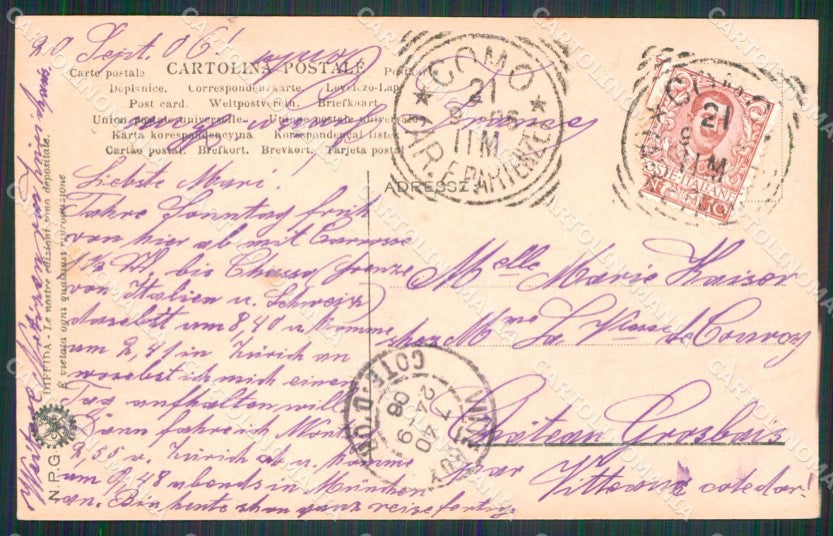 20 Sept. 06!
Carte postale CARTOLINA POSTALE Postkarte
Dopisnice. Correspondenzkarte. Levelezo-Lap
Post card. Weltpostverein. Briefkaart
Union postale universelle. Unione postale universale
Karta korespondencyjna Korespondencni listek
Cartão postal. Brefkort. Brevkort. Tarjeta postal
France
COMO
21
9 06
11M
ARR. E PARTENZE
COMO
21
9
11M
POSTE ITALIANE
ADRESSE
Liebste Mari.
Fahre Sonntag früh
von hier ab mit
1/2 bis Chiasso Grenze
von Italien u. Schweiz
daselbst um 8,40 u. komme
um 2,41 in Zürich an
woselbst ich mich einen
Tag aufhalten will
Dann fahre ich Mont
2,55 v. Zürich ab u. komme
um 9,48 abends in München
an. Bin heute schon ganz reisefertig.
Mlle Marie Kaiser
chez Mme La Vtesse de Courroy
Château Grosbois
par Vitteaux cotedor!
COTE-D'OR
7 40
24 9
06
DIFFIDA - Le nostre edizioni sono depositate.
È vietata ogni qualunque riproduzione
N.P.G.
CARTOLINOMANIA